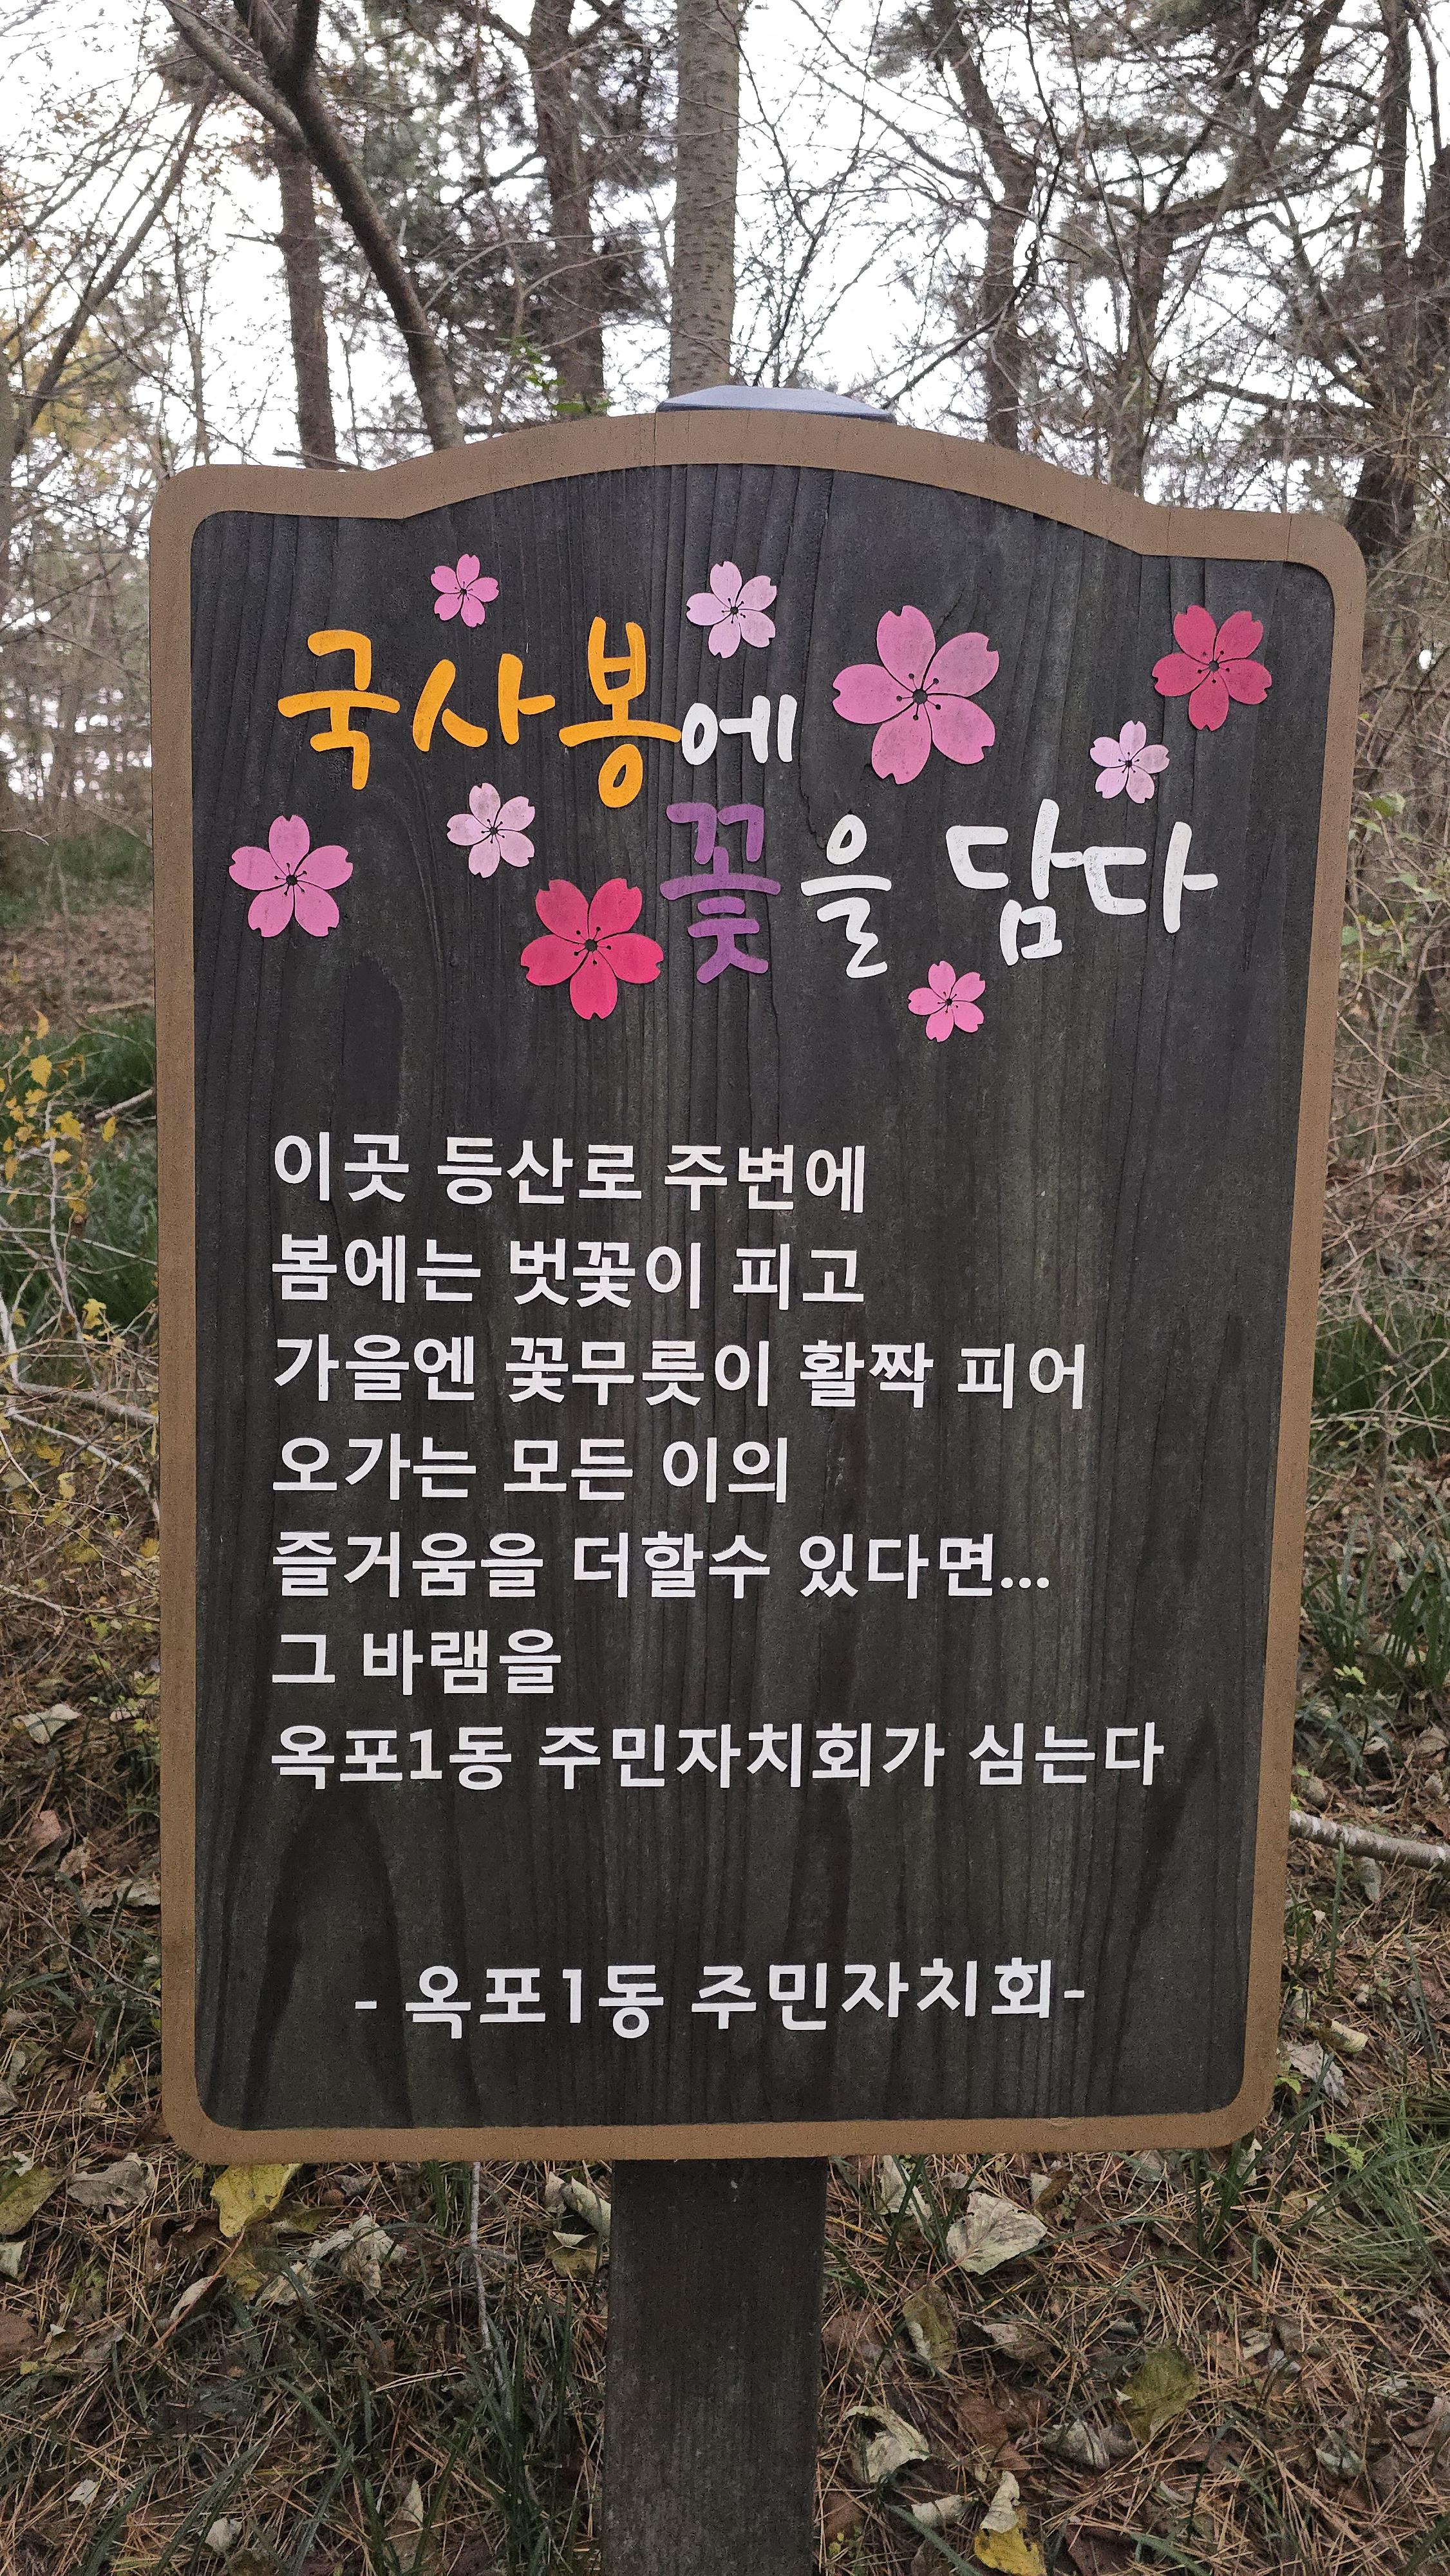 국사봉에
꽃을 담다
이곳 등산로 주변에
봄에는 벚꽃이 피고
가을엔 꽃무릇이 활짝 피어
오가는 모든 이의
즐거움을 더할수 있다면...
그 바램을
옥포1동 주민자치회가 심는다
- 옥포1동 주민자치회-